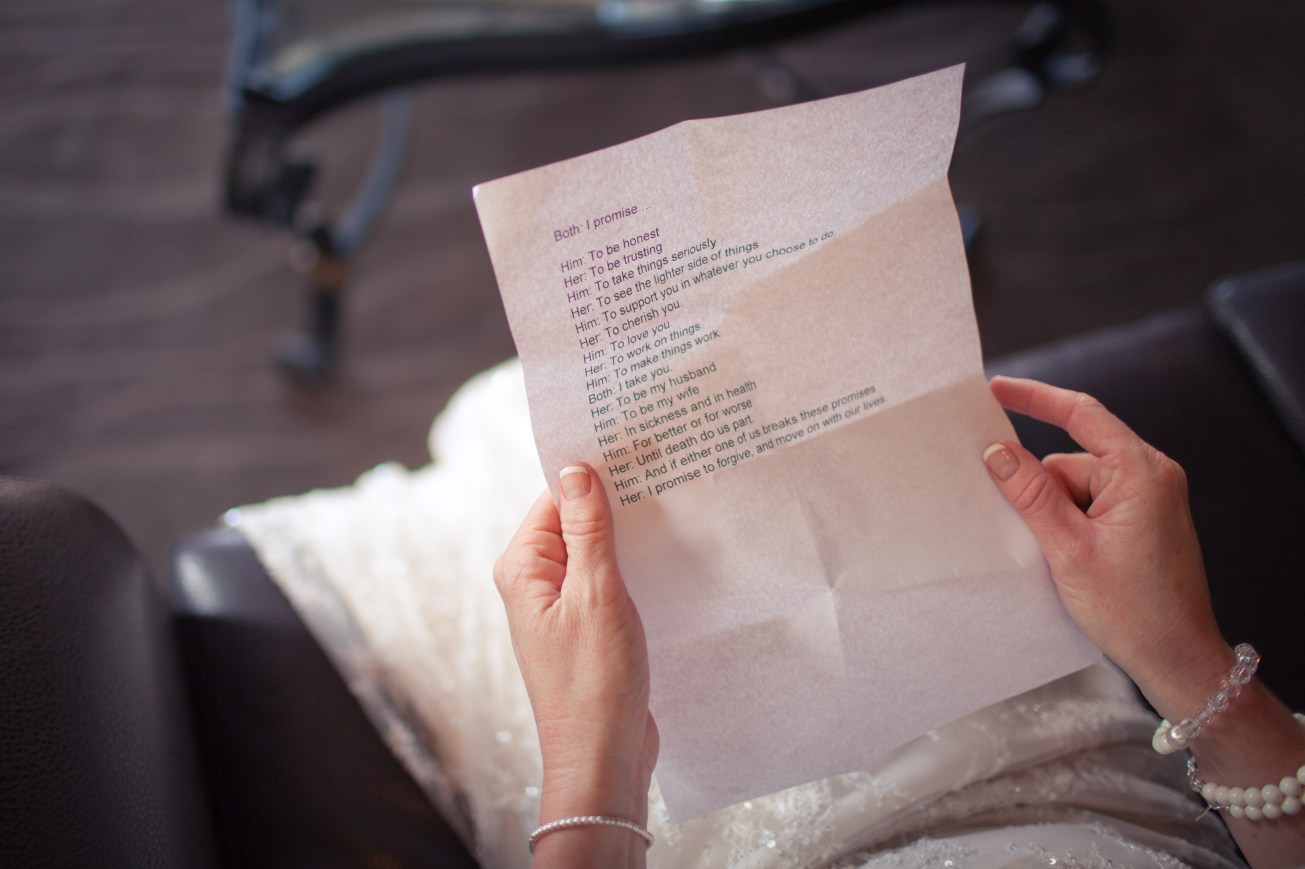 Both: I promise....
Him: To be honest
Her: To be trusting
Him: To take things seriously
Her: To see the lighter side of things
Him: To support you in whatever you choose to do.
Her: To cherish you.
Him: To love you
Her: To work on things
Him: To make things work
Both: I take you.
Her: To be my husband
Him: To be my wife
Her: In sickness and in health
Him: For better or for worse
Her: Until death do us part.
Him: And if either one of us breaks these promises
Her: I promise to forgive, and move on with our lives.